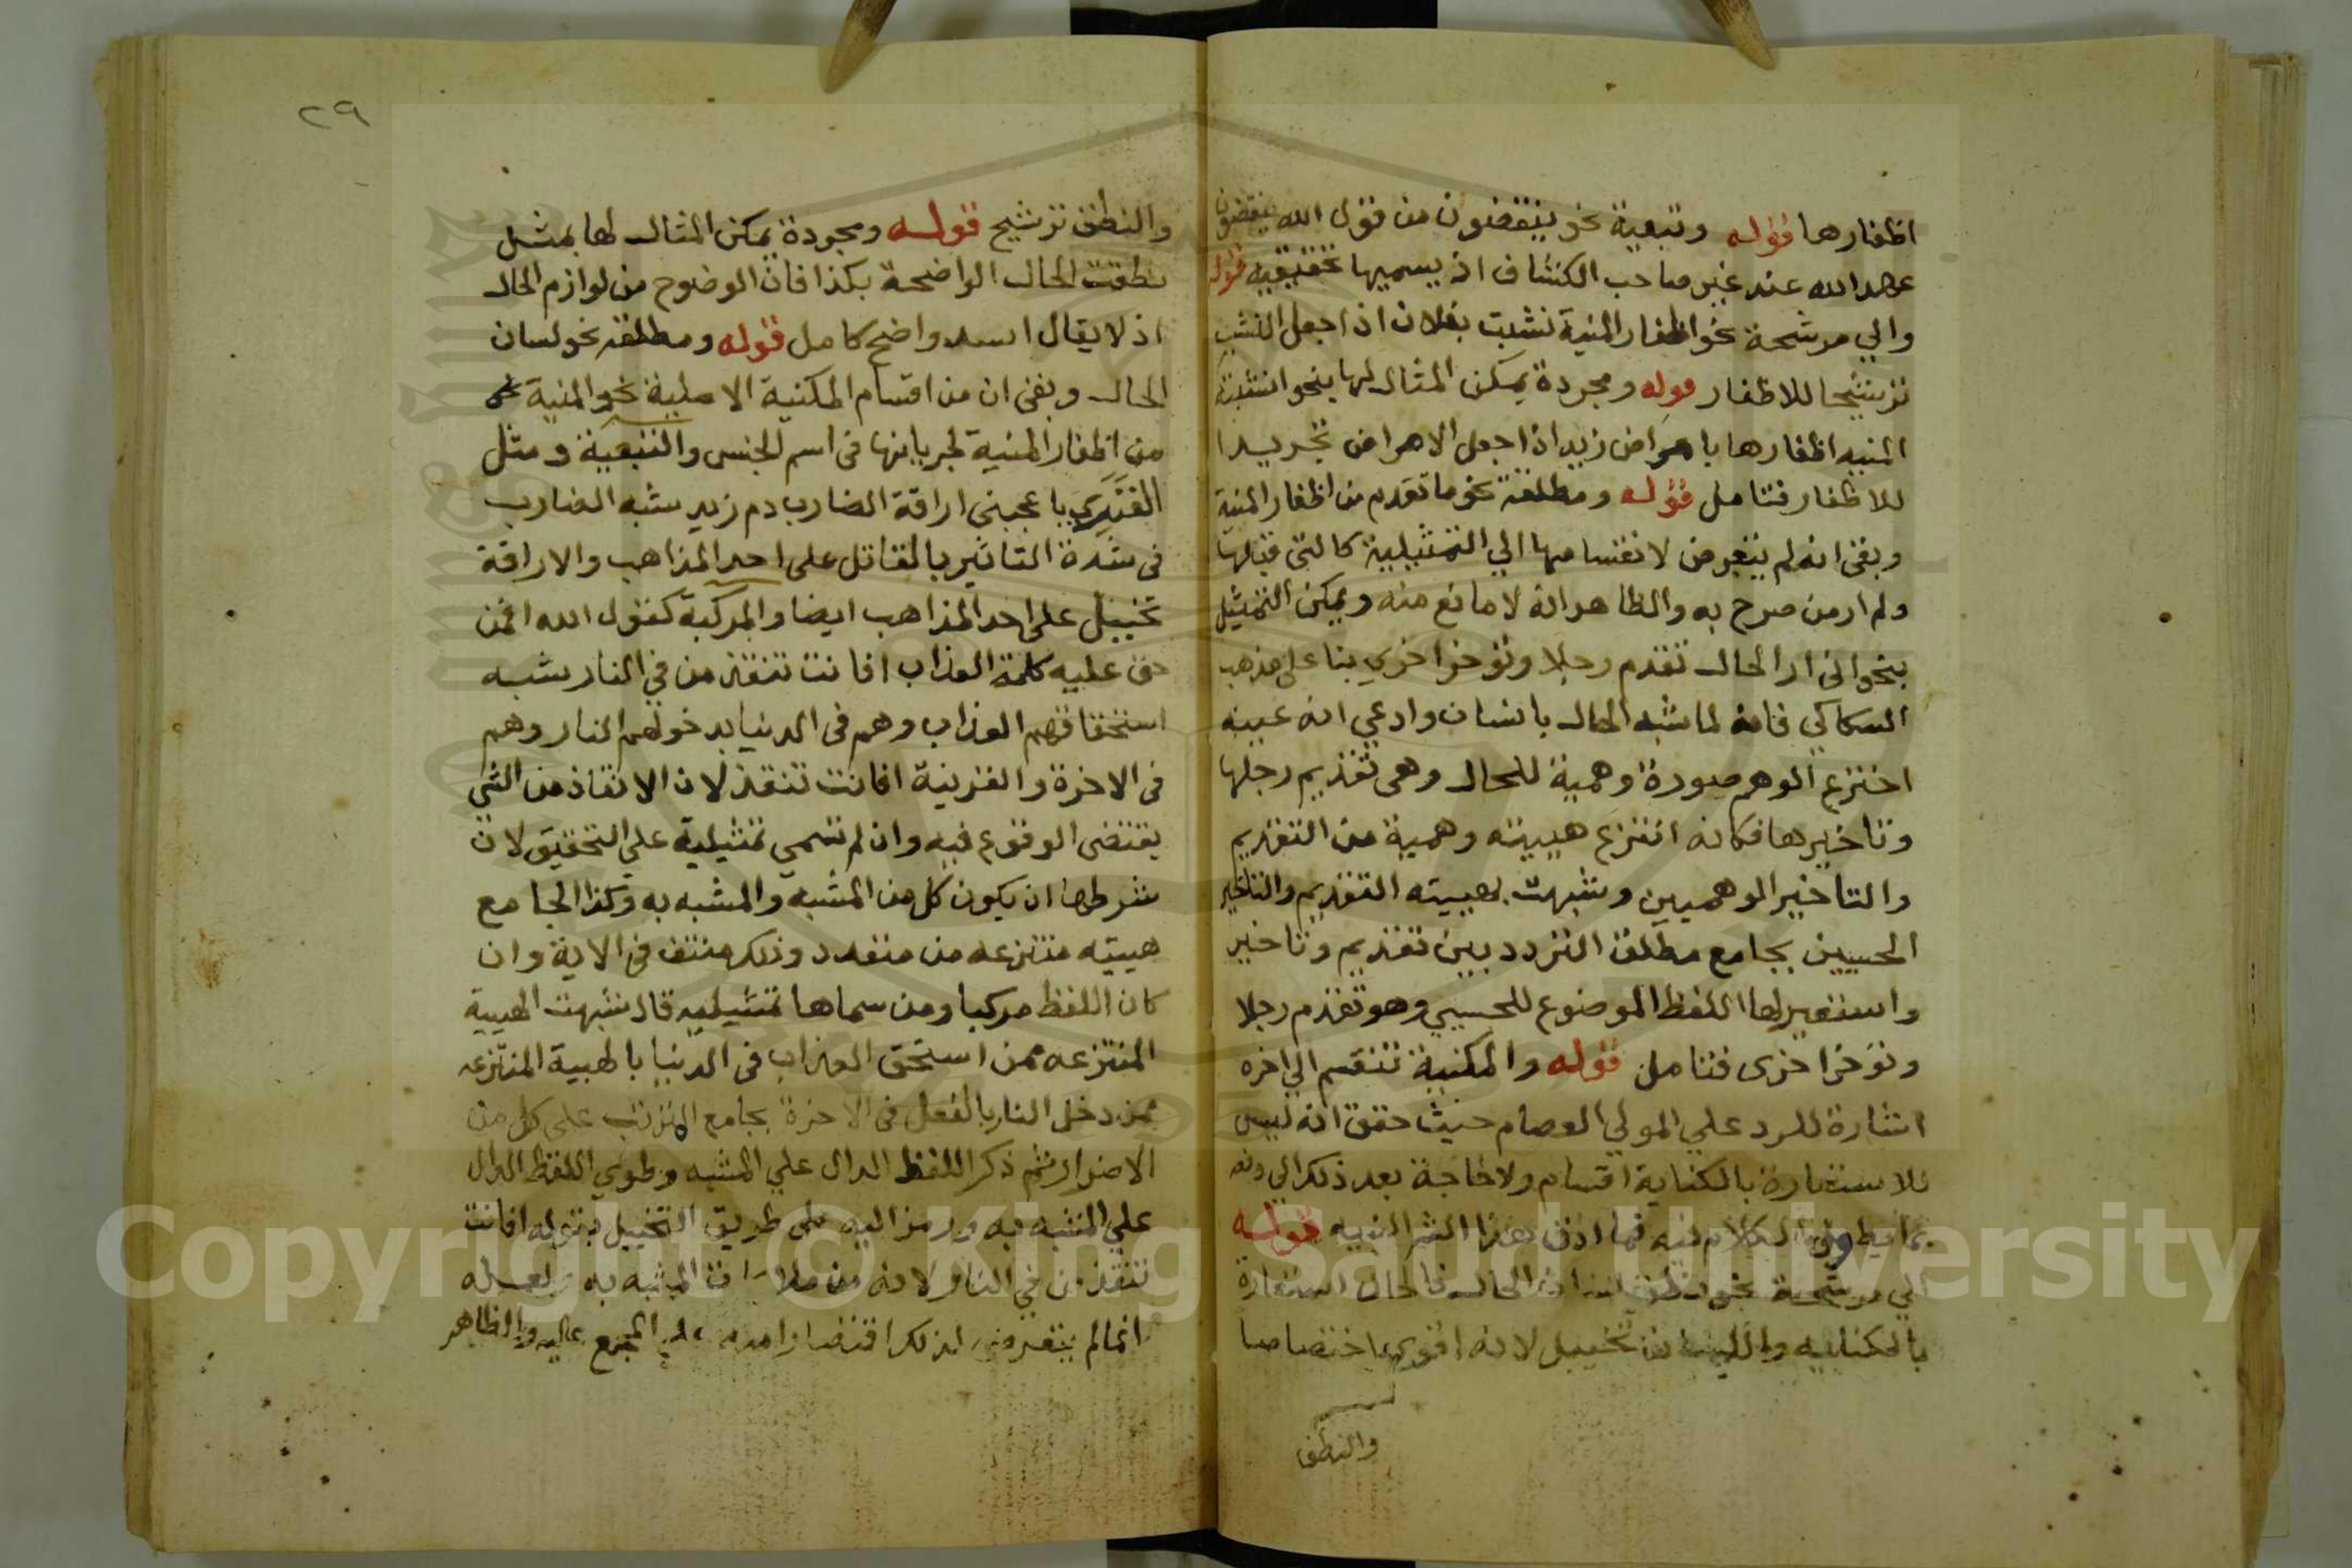 اظفارها قوله وتبعية نحو ينقضون من قول الله ينقضون
عهد الله عند غير صاحب الكشاف اذ يسميها تحقيقية قوله
والي مرشحة نحو اظفار المنية نشبت بفلان اذا جعل النشب
ترشيحا للاظفار قوله ومجردة يمكن المثال لها بنحو انشبت
المنيه اظفارها بامراض زيد اذا جعل الامراض تجريدا
للاظفار فتامل قوله ومطلقة نحو ما تقدم من اظفار المنية
وبقى انه لم يتعرض لانقسامها الي التمثيلية كالتى قبلها
ولم ار من صرح به والظاهر انه لا مانع منه ويمكن التمثيل
بنحو انى ار الحال تقدم رجلا وتوخر اخري بنا على مذهب
السكاكي فانه لما شبه الحال بانسان وادعي انه عينه
اخترع الوهم صورة وهمية للحال وهى تقديم رجلها
وتاخيرها فكانه انتزع هيئته وهمية من التقديم
والتاخير الوهميين وشبهت بهيئته التقديم والتاخير
الحسيين بجامع مطلق التردد بين تقديم وتاخير
واستعير لها اللفظ الموضوع للحسي وهو تقدم رجلا
وتوخر اخرى فتامل قوله والمكنية تنقسم الي اخره
اشارة للرد علي المولي العصام حيث حقق انه ليس
للاستعارة بالكناية اقسام ولا حاجة بعد ذكر الي
بما الكلام فيه فما ادق هذا الشر النبيه قوله
الي مرشحة نحو الحال فالحال استعارة
بالكنايه واللسان تخييل لانه اقوي اختصاصا
والنطق
٢٩
والنطق ترشيح قوله ومجردة يمكن المثال لها بمثل
نطقت الحال الواضحة بكذا فان الوضوح من لوازم الحال
اذ لا يقال اسد واضح كامل قوله ومطلقة نحو لسان
الحال وبقى ان من اقسام المكنية الاصلية نحو المنية
من اظفار المنية لجريانها فى اسم الجنس والتبعية ومثل
باعجبنى اراقة الضارب دم زيد شبه الضارب
فى شدة التاثير بالقاتل على احد المذاهب والاراقة
تخييل على احد المذاهب ايضا والمركبة كقول الله افمن
حق عليه كلمة العذاب افانت تنقذ من في النار شبه
استحقاقهم العذاب وهم فى الدنيا بدخولهم النار وهم
فى الاخرة والقرينة افانت تنقذ لان الانقاذ من الشي
يقتضى الوقوع فيه وان لم تسمي تمثيلية علي التحقيق لان
شرطها ان يكون كل من المشبه والمشبه به وكذا الجامع
هيئيته منتزعه من متعدد وذلك منتف فى الاية وان
كان اللفظ مركبا ومن سماها تمثيليه قال شبهت الهيية
المنتزعه ممن استحق العذاب فى الدنيا بالهيية المنتزعه
ممن دخل النار بالفعل فى الاخرة بجامع الترتب على كل من
الاضرار ثم ذكر اللفظ الدال علي المشبه وطوي اللفظ الدال
علي المشبه به ورمز اليه على طريق التخييل بقوله افانت
تنقذ من في النار لانه من المشبه به ولعله
انما لم يتعرض لذلك اقتصارا منه علي المجمع عليه والظاهر
Copyright © King Saud University